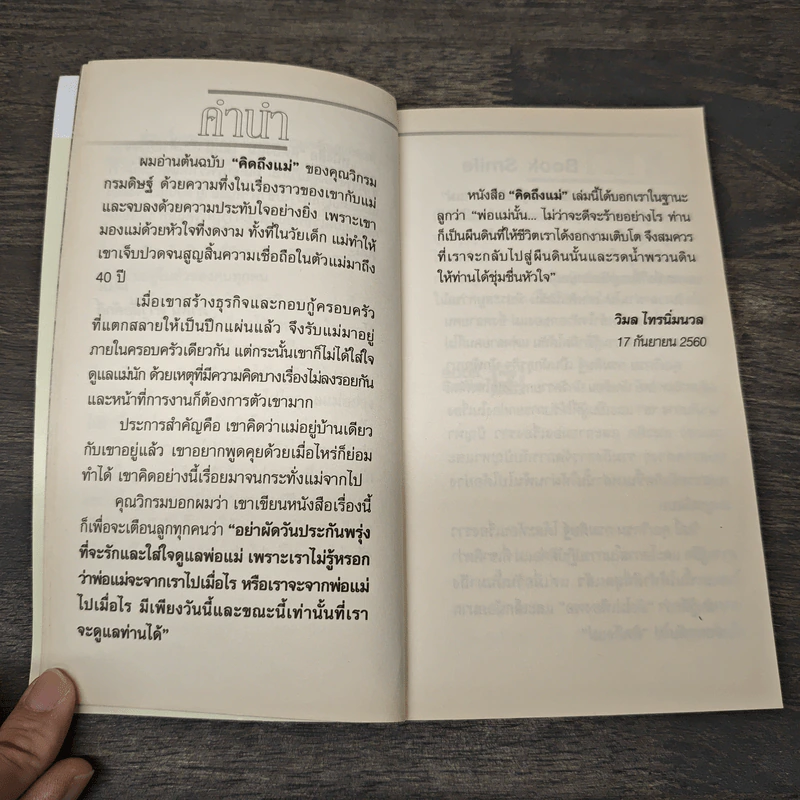 คำนำ
ผมอ่านต้นฉบับ “คิดถึงแม่” ของคุณวิกรม
กรมดิษฐ์ ด้วยความทึ่งในเรื่องราวของเขากับแม่
และจบลงด้วยความประทับใจอย่างยิ่ง เพราะเขา
มองแม่ด้วยหัวใจที่งดงาม ทั้งที่ในวัยเด็ก แม่ทำให้
เขาเจ็บปวดจนสูญสิ้นความเชื่อถือในตัวแม่มาถึง
40 ปี
เมื่อเขาสร้างธุรกิจและกอบกู้ครอบครัว
ที่แตกสลายให้เป็นปึกแผ่นแล้ว จึงรับแม่มาอยู่
ภายในครอบครัวเดียวกัน แต่กระนั้นเขาก็ไม่ได้ใส่ใจ
ดูแลแม่นัก ด้วยเหตุที่มีความคิดบางเรื่องไม่ลงรอยกัน
และหน้าที่การงานก็ต้องการตัวเขามาก
ประการสำคัญคือ เขาคิดว่าแม่อยู่บ้านเดียว
กับเขาอยู่แล้ว เขาอยากพูดคุยด้วยเมื่อไหร่ก็ย่อม
ทำได้ เขาคิดอย่างนี้เรื่อยมาจนกระทั่งแม่จากไป
คุณวิกรมบอกผมว่า เขาเขียนหนังสือเรื่องนี้
ก็เพื่อจะเตือนลูกทุกคนว่า “อย่าผัดวันประกันพรุ่ง
ที่จะรักและใส่ใจดูแลพ่อแม่ เพราะเราไม่รู้หรอก
ว่าพ่อแม่จะจากเราไปเมื่อไร หรือเราจะจากพ่อแม่
ไปเมื่อไร มีเพียงวันนี้และขณะนี้เท่านั้นที่เรา
จะดูแลท่านได้”
หนังสือ “คิดถึงแม่” เล่มนี้ได้บอกเราในฐานะ
ลูกว่า “พ่อแม่นั้น... ไม่ว่าจะดีจะร้ายอย่างไร ท่าน
ก็เป็นผืนดินที่ให้ชีวิตเราได้งอกงามเติบโต จึงสมควร
ที่เราจะกลับไปสู่ผืนดินนั้นและรดน้ำพรวนดิน
ให้ท่านได้ชุ่มชื่นหัวใจ”
วิมล ไทรนิ่มนวล
17 กันยายน 2560